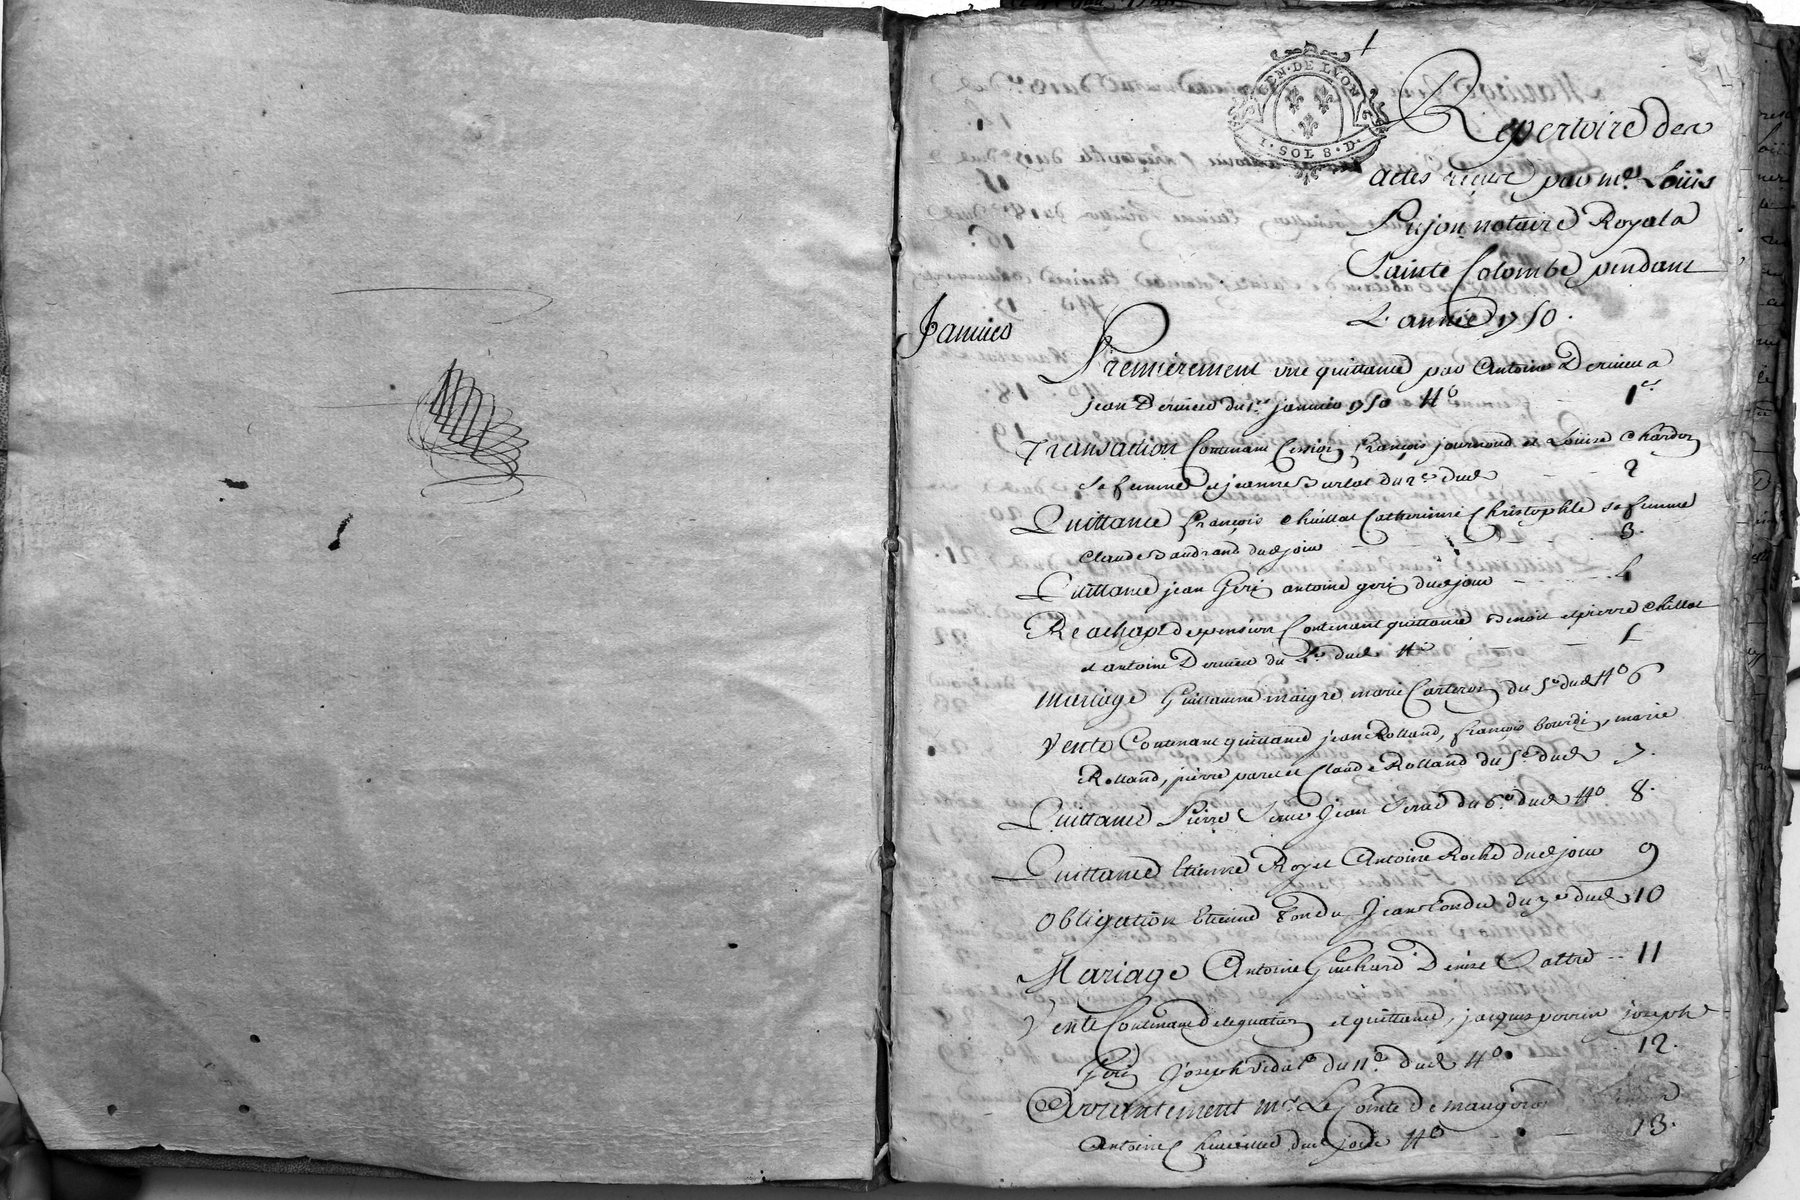 1
GEN · DE LYON
1 · SOL 8 · D ·
Repertoire des
actes reçus par me Loüis
Pujon notaire Royal a
Sainte Colombe pendant
L'année 1750.
Janvier
Premierement une quittance par Antoine Dervieu a
jean Dervieu du 1er janvier 1750 1er
Transaction Contenant Cession françois journoud et Loüise Chardon
sa femme et jeanne Burlat du 2e dud 2
Quittance françois Chuillat Catherinne Christophle sa femme
Claude Baudrand dud jour 3.
Quittance jean Geri antoine geri dud jour 4
Reachapt de pension Contenant quittance Benoit et pierre Chillat
et antoine Dervieu du dud 5
Mariage Guillaume maigre marie Carteron du 5e dud 6
Vente Contenant quittance jean Rolland, françois bourdin, marie
Rolland, pierre paret et Claude Rolland du 5e dud 7.
Quittance Pierre Serve Jean Serve du 6e dud 8.
Quittance Etienne Royet Antoine Roche dud jour 9
Obligation Etienne Fondu Jean Fondu du 7e dud 10
Mariage Antoine Guichard Denise 11
Vente Contenant Delegation et quittance, jacques perrin joseph
Geri Joseph Vidal du 11e dud 12.
Arrentement mr Le Comte De maugiron
Antoine dud jour 13.